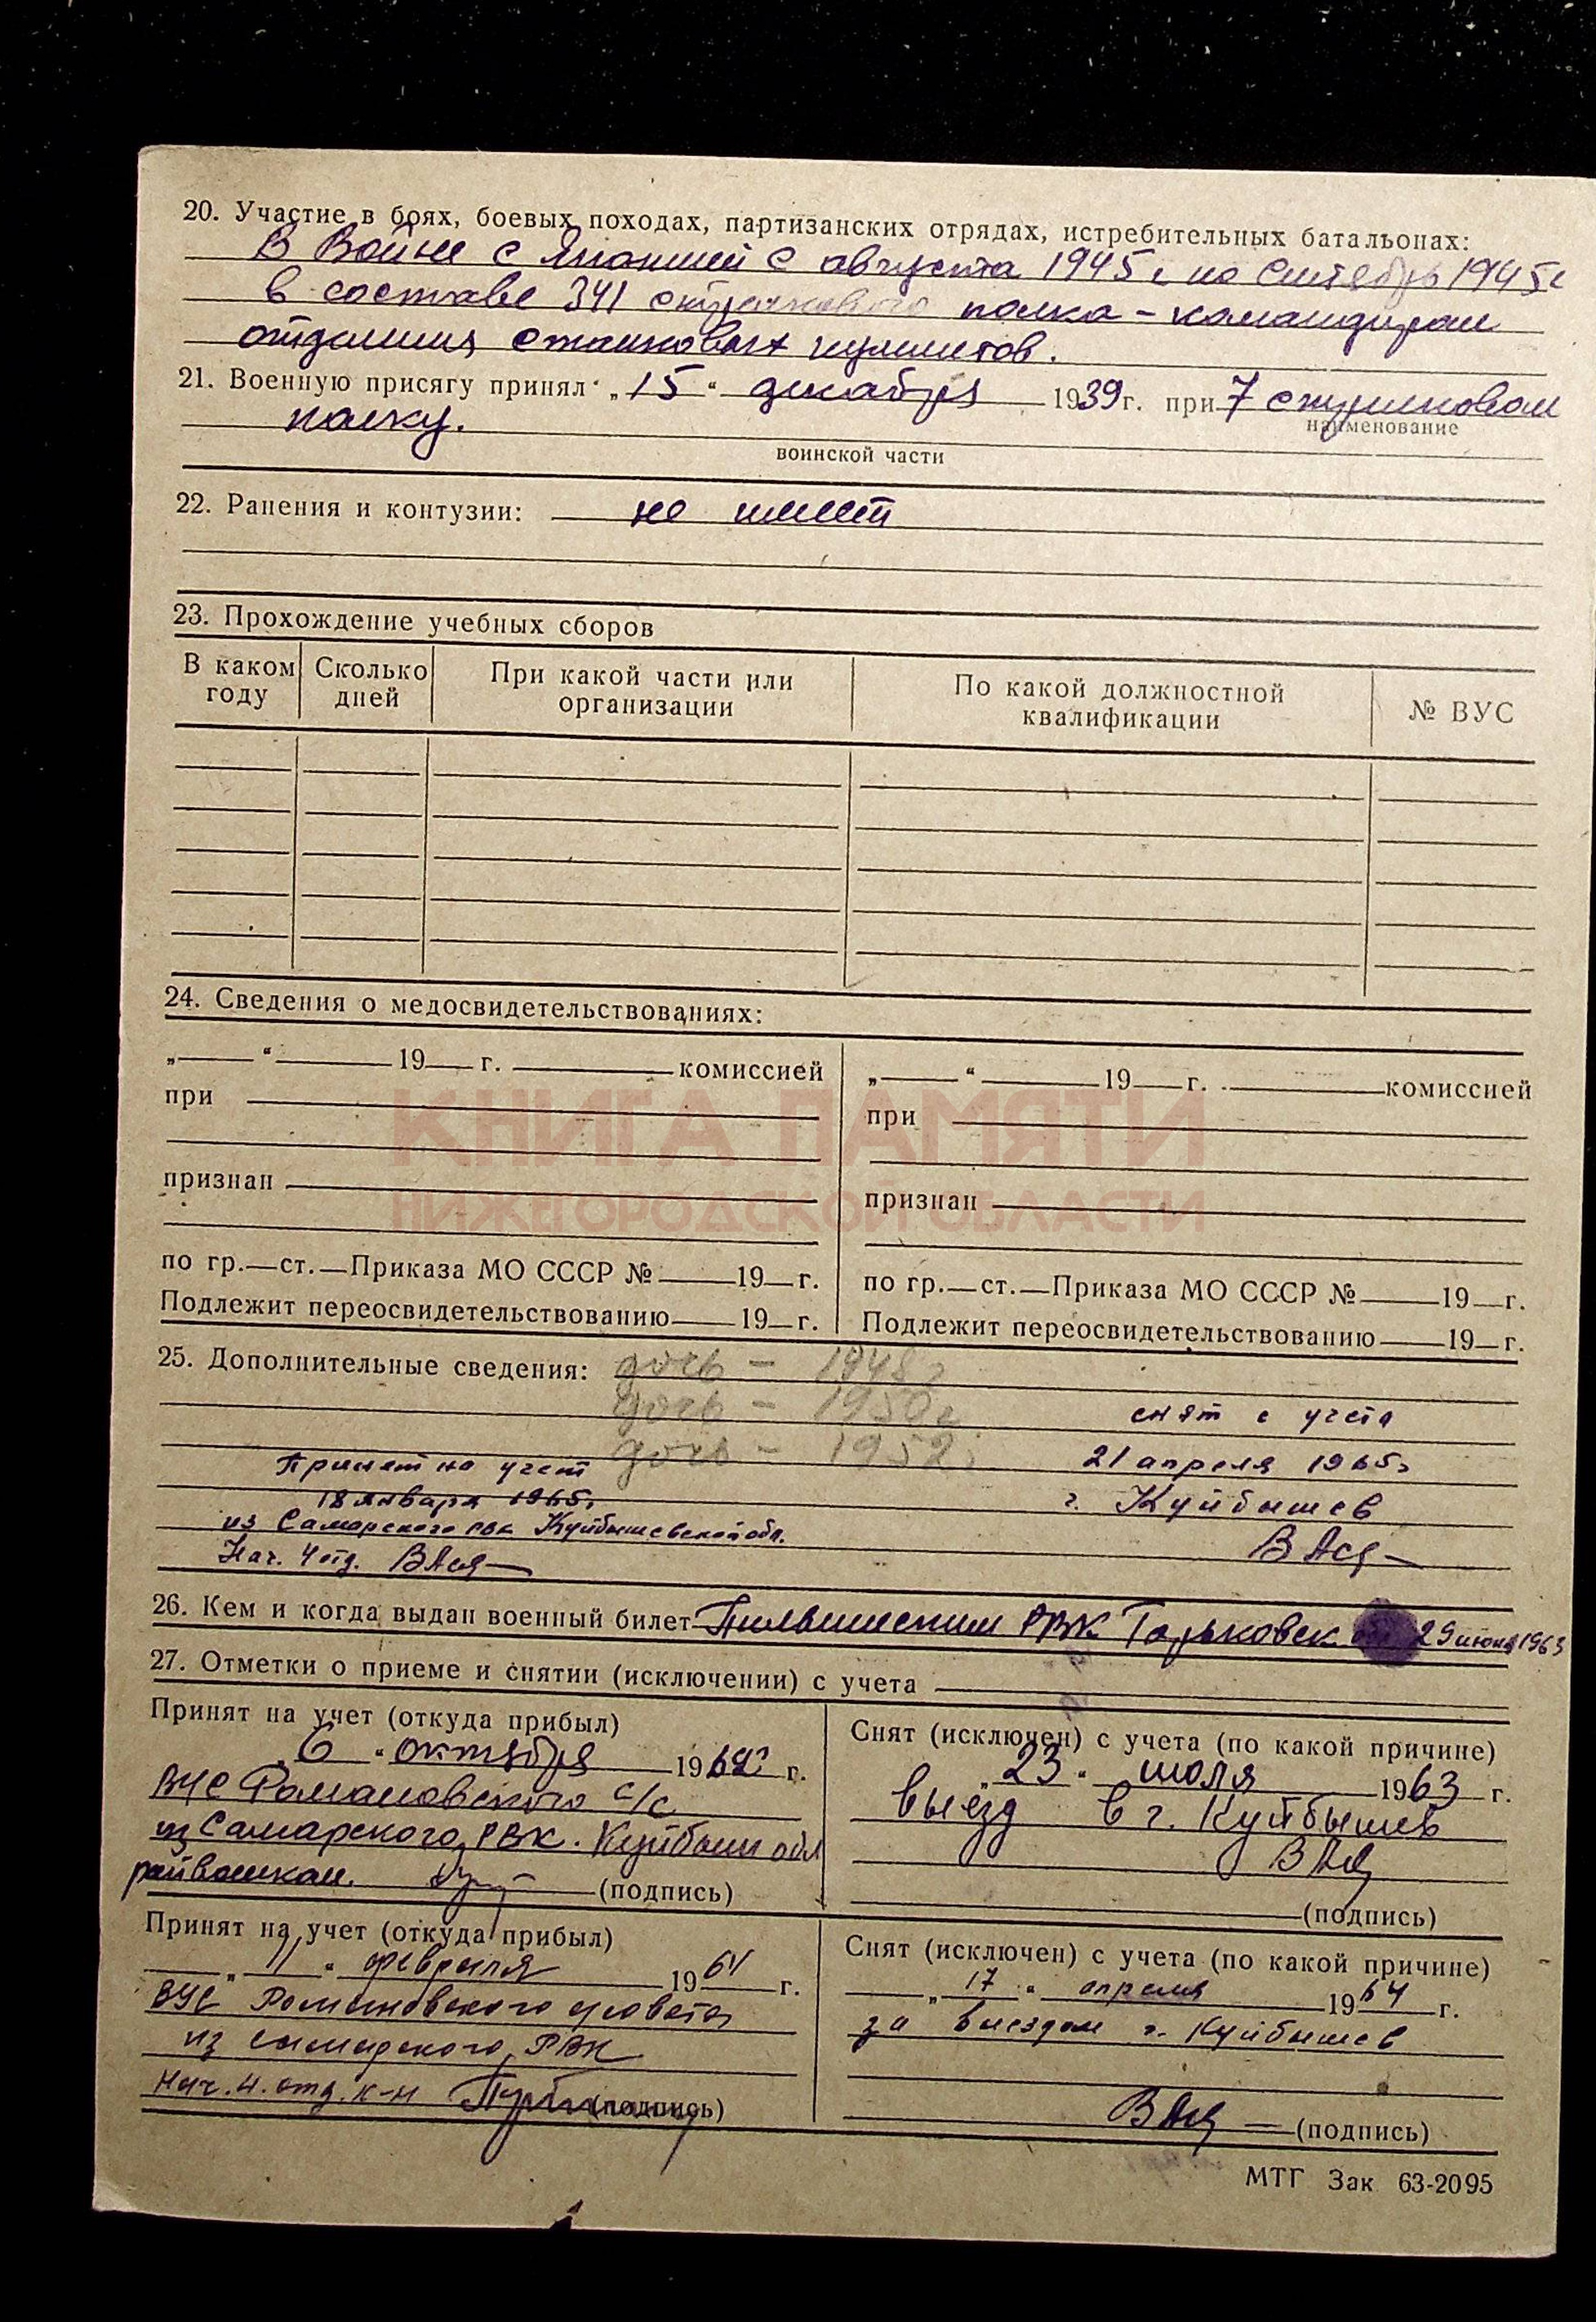 20. Участие в боях, боевых походах, партизанских отрядах, истребительных батальонах:
В Войне с Японией с августа 1945 г по Сентябрь 1945г
в составе 341 стрелкового полка – командиром
отделения станковых пулеметов.
21. Военную присягу принял „15“ декабря 1939 г. при 7 стрелковом
наименование
полку.
воинской части
22. Ранения и контузии: не имеет
23. Прохождение учебных сборов
В каком году Сколько дней При какой части или организации По какой должностной квалификации № ВУС
24. Сведения о медосвидетельствованиях:
„ “ 19 г. комиссией „ “ 19 г. комиссией
при при
КНИГА ПАМЯТИ
признан признан
НИЖЕГОРОДСКОЙ ОБЛАСТИ
по гр. ст. Приказа МО СССР № 19 г. по гр. ст. Приказа МО СССР № 19 г.
Подлежит переосвидетельствованию 19 г. Подлежит переосвидетельствованию 19 г.
25. Дополнительные сведения: дочь – 1948г
дочь – 1950г
снят с учета
дочь – 1952г
Принят на учет 21 апреля 1965г
18 января 1965г г. Куйбышев
из Самарского РВК Куйбышевской обл.
Нач. 4 отд.
26. Кем и когда выдан военный билет Пильнинским РВК Горьковск. обл 29 июня 1963
27. Отметки о приеме и снятии (исключении) с учета
Принят на учет (откуда прибыл) Снят (исключен) с учета (по какой причине)
„6“ октября 196 г. „23“ июля 1963 г.
ВУС Романовского с/с выезд в г. Куйбышев
из Самарского РВК. Куйбыш обл
райвоенком. (подпись)
(подпись)
Принят на учет (откуда прибыл) Снят (исключен) с учета (по какой причине)
„11“ февраля 1964 г. „17“ апреля 1964 г.
ВУС Романовского совета за выездом г. Куйбышев
из самарского РВК
Нач. 4. отд. к-н (подпись)
(подпись)
МТГ Зак 63-2095